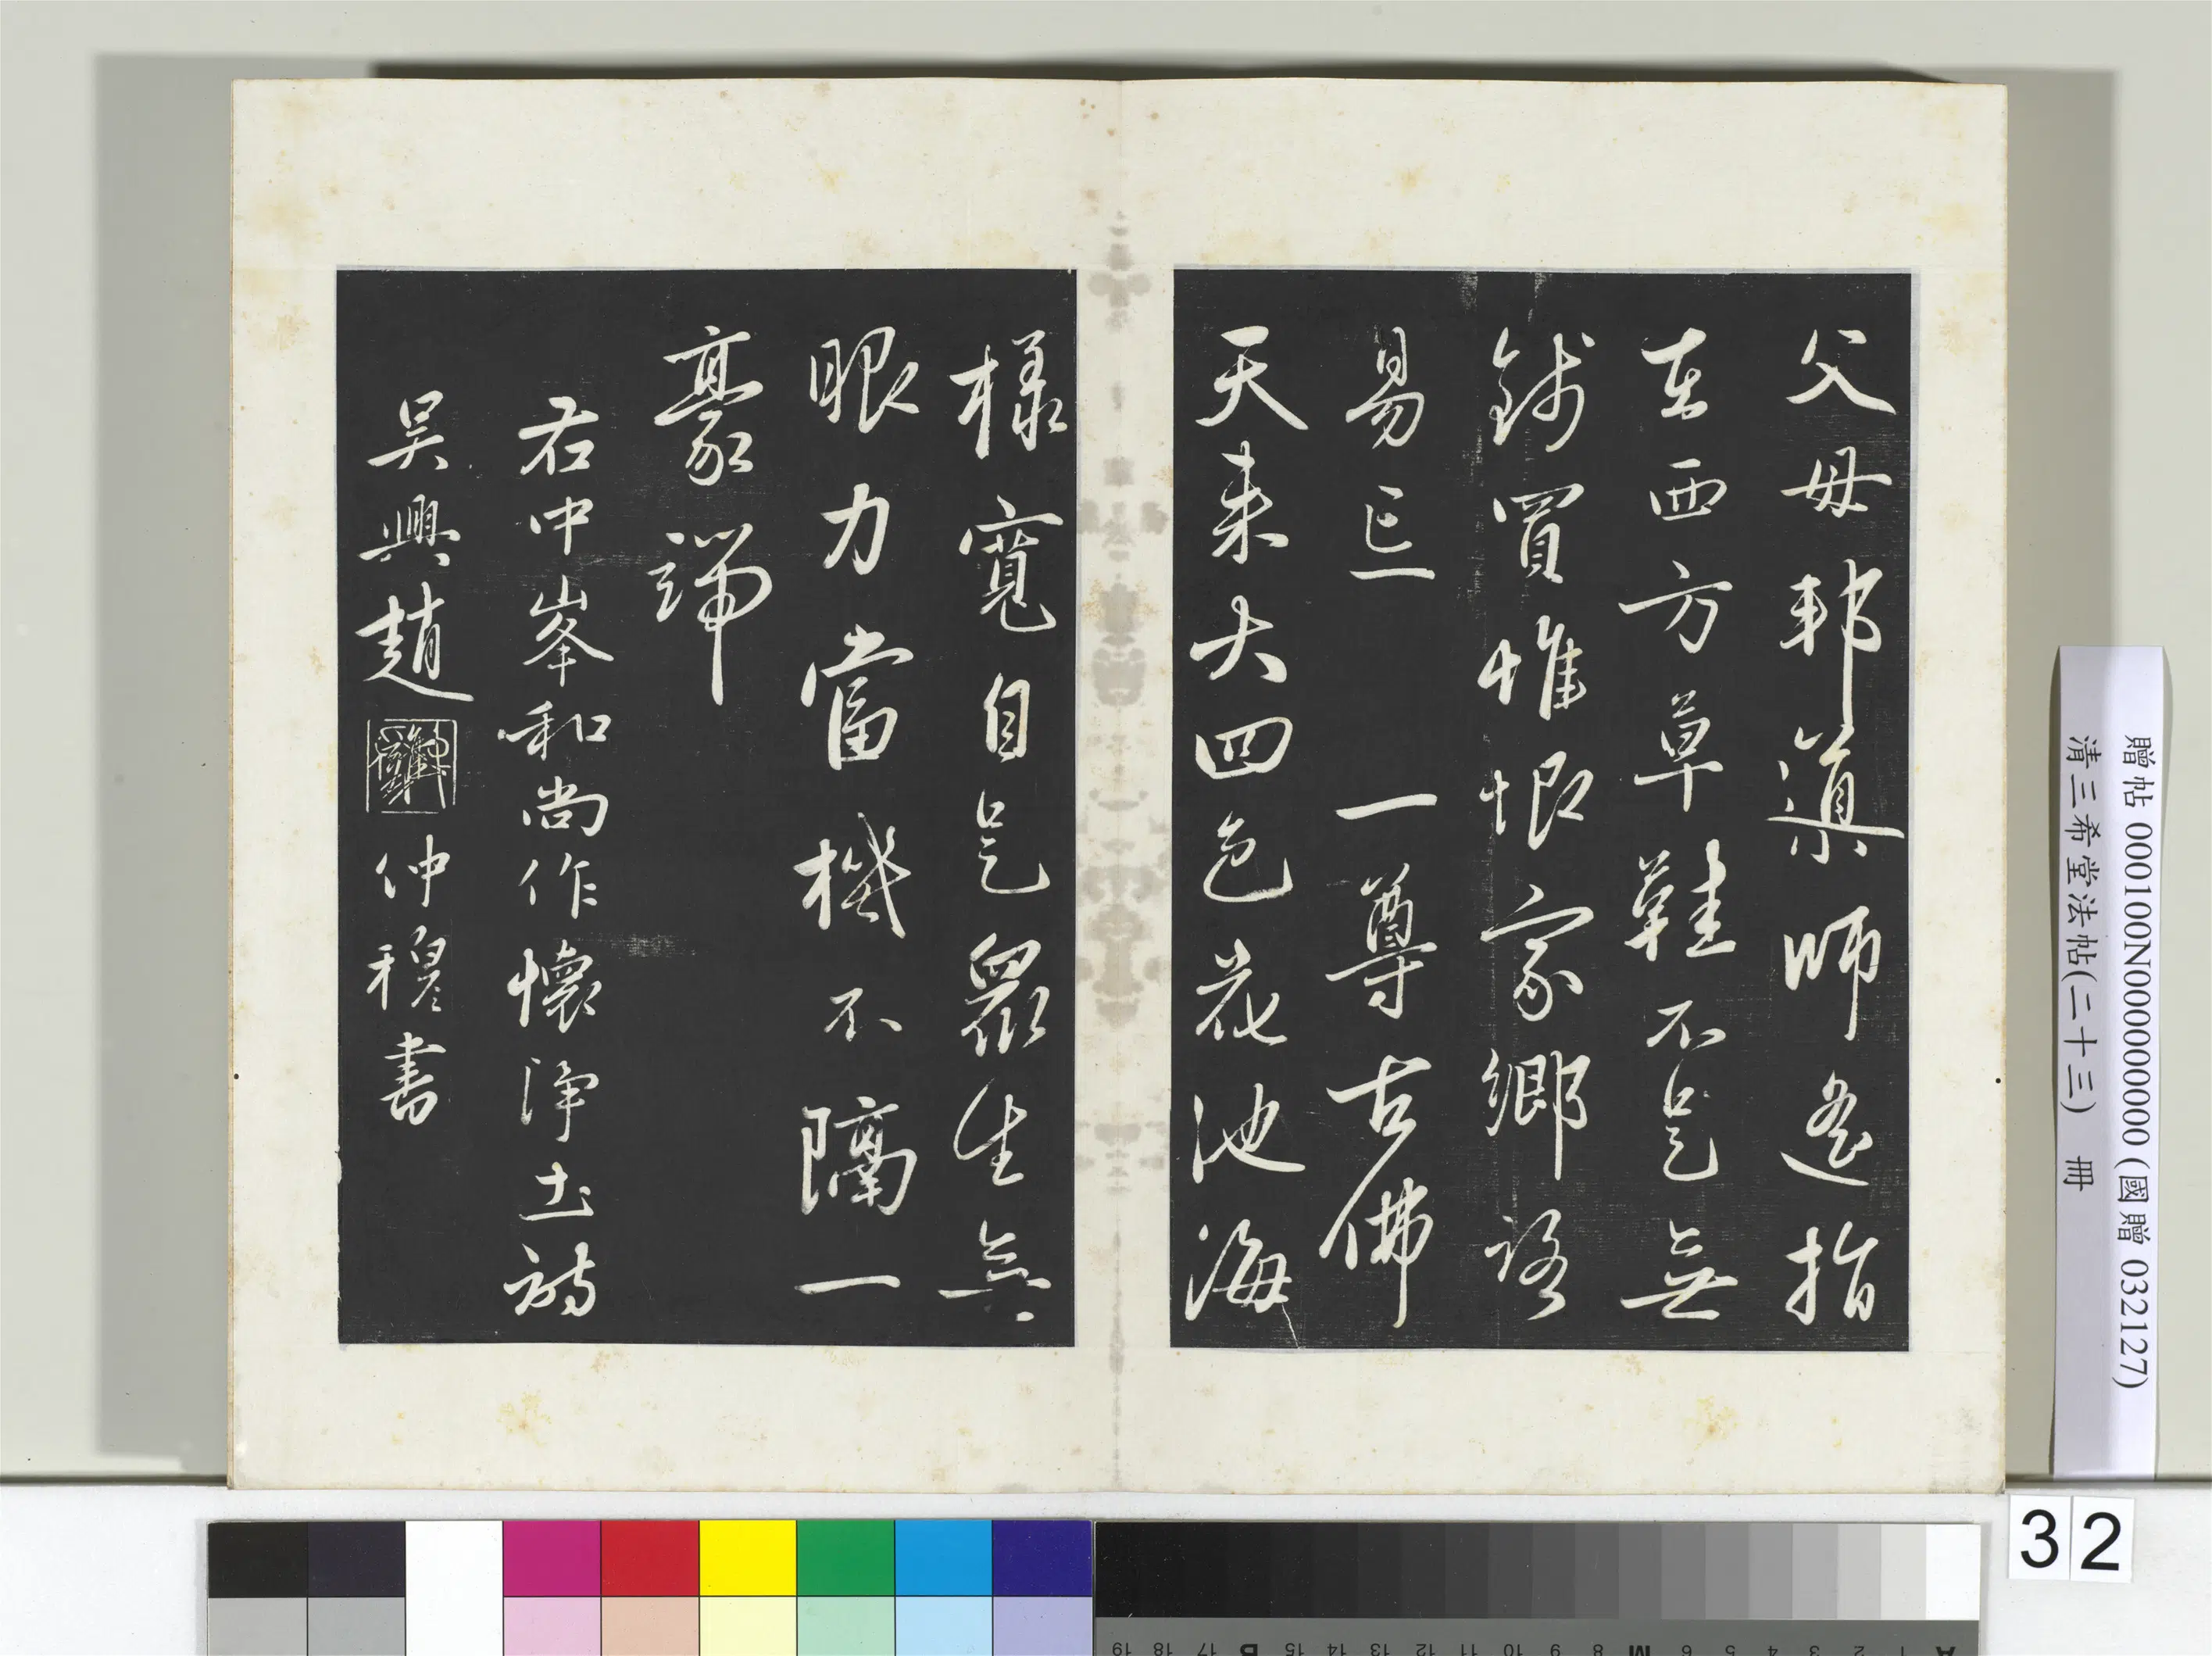 父母邦導師遙指
在西方草鞋不是無
錢買惟恨家鄉路
易忘　一尊古佛
天來大四色花池海
樣寬自是眾生無
眼力當機不隔一
豪端
右中峯和尚作懷淨土詩
吳興趙雍仲穆書
贈帖 000100N000000000 (國贈 032127)
清三希堂法帖(二十三) 冊
32
19 18 17 B 16 15 14 13 12 11 10 9 8 M 7 6 5 4 3 2 1 A